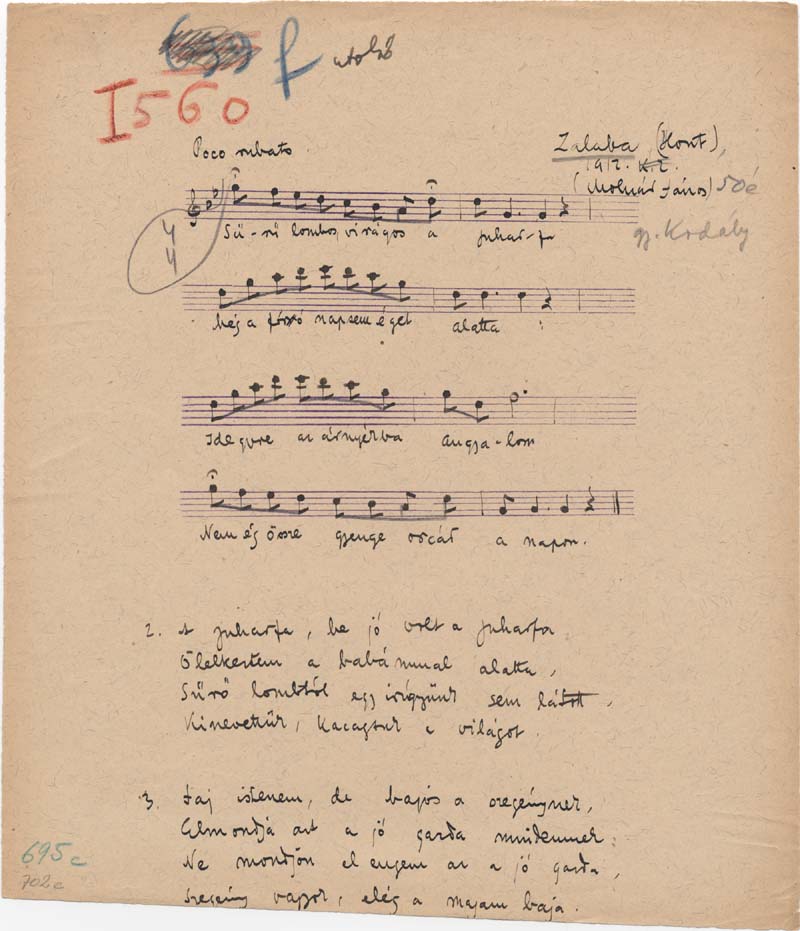 f utolsó
I 560
Poco rubato
Zalaba (Hont),
1912. K. Z.
(Molnár János) 50é
gy. Kodály
4
4
Sü-rű lombos, virágos a juhar-fa
Még a forró nap sem éget alatta :
Ide gyere az árnyékba angya-lom
Nem ég össze gyenge orcád a napon.
2. A juharfa, be jó volt a juharfa
Ölelkeztem a babámmal alatta,
Sűrű lombtól egy irígyünk sem látott,
Kinevettük, kacagtuk a világot.
3. Jaj istenem, de bajos a szegénynek,
Elmondja azt a jó gazda mindennek:
Ne mondjon el engem az a jó gazda,
Szegény vagyok, elég a magam baja.
695c
702c